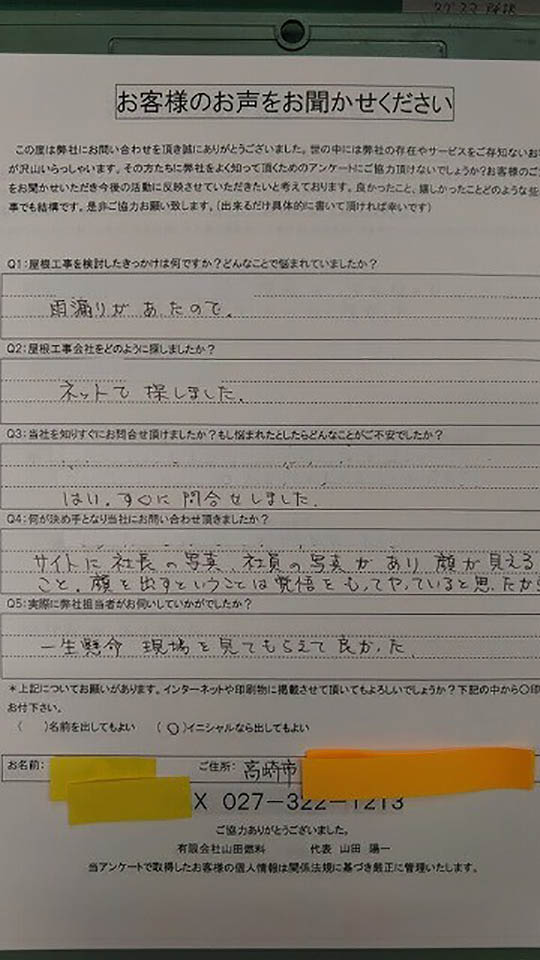 お客様のお声をお聞かせください
この度は弊社にお問い合わせを頂き誠にありがとうございました。世の中には弊社の存在やサービスをご存知ないお
が沢山いらっしゃいます。その方たちに弊社をよく知って頂くためのアンケートにご協力頂けないでしょうか?お客様のご
をお聞かせいただき今後の活動に反映させていただきたいと考えております。良かったこと、嬉しかったことどのような些
事でも結構です。是非ご協力お願い致します。(出来るだけ具体的に書いて頂ければ幸いです)
Q1:屋根工事を検討したきっかけは何ですか?どんなことで悩まれていましたか?
雨漏りがあたので。
Q2:屋根工事会社をどのように探しましたか?
ネットで探しました。
Q3:当社を知りすぐにお問合せ頂けましたか?もし悩まれたとしたらどんなことがご不安でしたか?
はい。すぐに問合せしました。
Q4:何が決め手となり当社にお問い合わせ頂きましたか?
サイトに社長の写真、社員の写真があり顔が見える
こと。顔を出すということは覚悟をもってやっていると思ったから
Q5:実際に弊社担当者がお伺いしていかがでしたか?
一生懸命現場を見てもらえて良かった
*上記についてお願いがあります。インターネットや印刷物に掲載させて頂いてもよろしいでしょうか?下記の中から〇印
お付下さい。
( )名前を出してもよい (〇)イニシャルなら出してもよい
お名前: ご住所:高崎市
X 027-322-1213
ご協力ありがとうございました。
有限会社山田燃料 代表 山田 陽一
当アンケートで取得したお客様の個人情報は関係法規に基づき厳正に管理いたします。